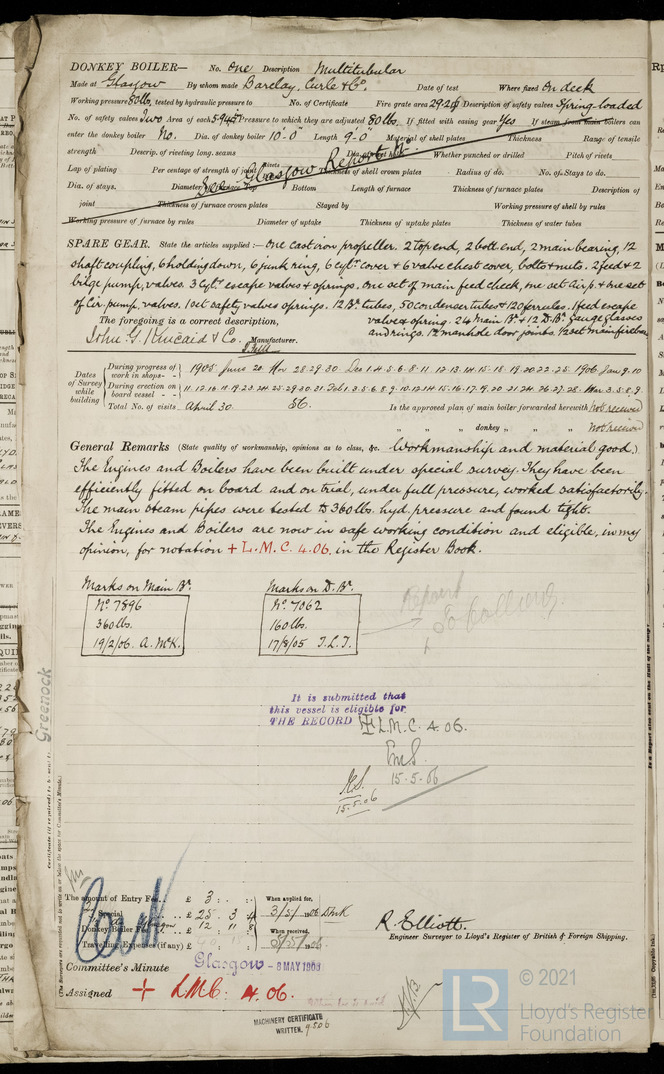 DONKEY BOILER— No. One Description Multitubular
Made at Glasgow By whom made Barclay, Curle & Co. Date of test Where fixed On deck
Working pressure 80 lb. tested by hydraulic pressure to No. of Certificate Fire grate area 29.2 Description of safety valves Spring-loaded
No. of safety valves Two Area of each 5.94 Pressure to which they are adjusted 80 lb. If fitted with easing gear Yes If steam from main boilers can
enter the donkey boiler No. Dia. of donkey boiler 10'-0" Length 9'-0" Material of shell plates Thickness Range of tensile
strength Descrip. of riveting long. seams Whether punched or drilled Pitch of rivets
Lap of plating Per centage of strength of joint Rivets Thickness of shell crown plates Radius of do. No. of Stays to do.
Glasgow Report
Dia. of stays. Diameter Top Bottom Length of furnace Thickness of furnace plates Description of
joint Thickness of furnace crown plates Stayed by Working pressure of shell by rules
Working pressure of furnace by rules Diameter of uptake Thickness of uptake plates Thickness of water tubes
SPARE GEAR. State the articles supplied:— One cast iron propeller. 2 top end, 2 bott. end, 2 main bearing, 12
shaft coupling, 6 holding down, 6 junk ring, 6 cylr cover & 6 valve chest cover, bolts & nuts. 2 feed & 2
bilge pump, valves. 3 Cylr escape valves & springs. One set of main feed check, one set air p. & one set
of Cir. pump. valves. 1 set safety valve springs. 12 Br. tubes, 50 condenser tubes & 120 ferrules. 1 feed escape
valve & spring. 24 Main Br & 12 D. Br. gauge glasses
and rings. 12 manhole door joints. 1/2 set main firebars
The foregoing is a correct description,
John G. Kincaid & Co. Manufacturer.
Dates of Survey while building
During progress of work in shops-- 1905 June 20 Nov 28.29.30 Dec 1.4.5.6.8.11.12.13.14.15.18.19.20.22.25. 1906 Jan 9.10
During erection on board vessel-- 11.12.16.18.19.23.24.25.29.30.31 Feb 1.3.5.6.8.9.10.12.14.15.16.17.19.20.21.24.26.27.28. Mar 3.5.8.9.
Total No. of visits April 30 56. Is the approved plan of main boiler forwarded herewith not received
" " " donkey " " " not received
General Remarks (State quality of workmanship, opinions as to class, &c. Workmanship and material good.)
The Engines and Boilers have been built under special survey. They have been
efficiently fitted on board and on trial, under full pressure, worked satisfactorily.
The main steam pipes were tested to 360 lbs. hyd. pressure and found tight.
The Engines and Boilers are now in safe working condition and eligible, in my
opinion, for notation + L.M.C. 4.06. in the Register Book.
Marks on Main Br.
No 7896
360 lbs.
19/2/06. A. McK.
Marks on D. Br.
No. 7062
160 lbs.
17/8/05 J.L.T.
Greenock
It is submitted that
this vessel is eligible for
THE RECORD + L.M.C. 4.06.
15.5.06
15.5.06
The amount of Entry Fee.. £ 3 : : When applied for,
Special .. £ 25 : 3 3/5/1906
Donkey Boiler Fee £ 12 : 11 When received,
Travelling Expenses (if any) £
R. Elliott.
Engineer Surveyor to Lloyd's Register of British & Foreign Shipping.
Committee's Minute Glasgow - 8 MAY 1906
Assigned + L.M.C. 4.06.
MACHINERY CERTIFICATE
WRITTEN. 9.5.06
© 2021
LR
Lloyd's Register
Foundation